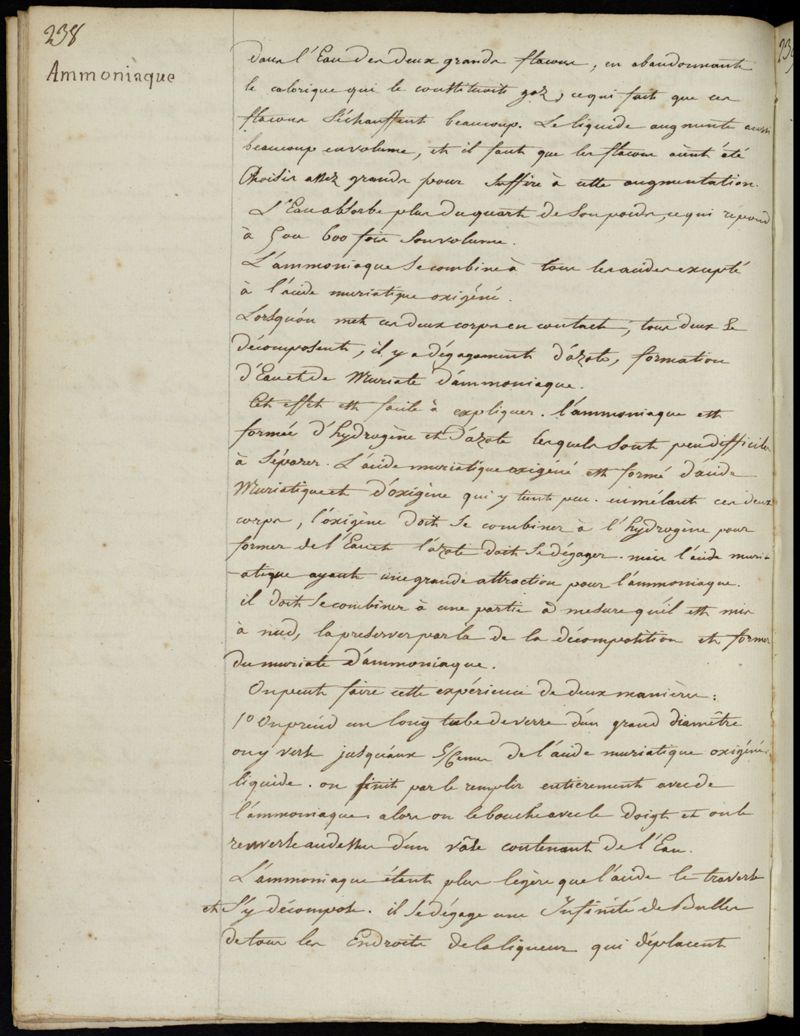 238
Ammoniaque
dans l'Eau des deux grands flacons, en abandonnant
le calorique qui le constituoit gaz, cequi fait que ces
flacons s'échauffent beaucoup. Le liquide augmente aussi
beaucoup envolume, et il faut que les flacons aient été
Choisis assez grands pour suffire à cette augmentation.
L'Eau absorbe plus du quart de Son poids, cequi répond
à 5 ou 600 fois Sonvolume.
L'ammoniaque Se combine à tous les acides excepté
à l'acide muriatique oxigéné.
Lorsqu'on met ces deux corps en contact, tous deux Se
décomposent, il y a dégagement d'azote, formation
d'Eau et de Muriate d'ammoniaque.
Cet effet est facile à expliquer. l'ammoniaque est
formée d'hydrogène et d'azote lesquels Sont peu difficiles
à Séparer. L'acide muriatique oxigéné est formé d'acide
Muriatique et d'oxigène qui y tient peu. en mélant ces deux
corps, l'oxigène doit Se combiner à l'hydrogène pour
former de l'Eau et l'azote doit Se dégager. mais l'acide muri-
-atique ayant une grande attraction pour l'ammoniaque.
il doit Se combiner à une partie à mesure qu'il est mis
à nud, la préserver par là de la décomposition et former
du muriate d'ammoniaque.
On peut faire cette expérience de deux manières:
1° On prend un long tube de verre d'un grand diamêtre
on y verse jusqu'aux 5/6emes de l'acide muriatique oxigéné
liquide. on finit par le remplir entierement avec de
l'ammoniaque alors on le bouche avec le doigt et on le
renverse au dessus d'un vâse contenant de l'Eau.
L'ammoniaque étant plus légère que l'acide le traverse
et S'y décompose. il Se dégage une Infinité de Bulles
de tous les Endroits de la liqueur qui déplacent